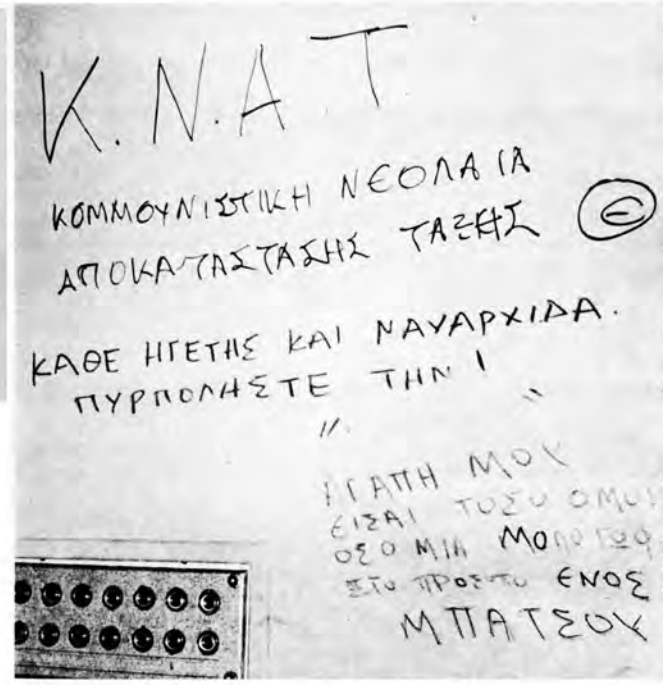 Κ.Ν.Α.Τ
ΚΟΜΜΟΥΝΙΣΤΙΚΗ ΝΕΟΛΑΙΑ
ΑΠΟΚΑΤΑΣΤΑΣΗΣ ΤΑΞΗΣ Ⓔ
ΚΑΘΕ ΗΓΕΤΗΣ ΚΑΙ ΝΑΥΑΡΧΙΔΑ.
ΠΥΡΠΟΛΗΣΤΕ ΤΗΝ!
ΑΓΑΠΗ ΜΟΥ
ΕΙΣΑΙ ΤΟΣΟ
ΟΣΟ ΜΙΑ
ΣΤΟ ΕΝΟΣ
ΜΠΑΤΣΟΥ